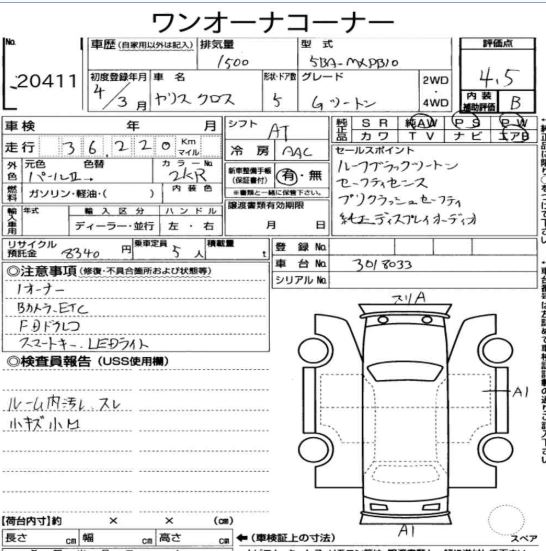 ワンオーナコーナー
No. 20411
車歴 (自家用以外は記入) 排気量 1500 型式 5BA-MXPB10
評価点 4.5
内装補助評価 B
初度登録年月 4/3月 車名 ヤリスクロス 形状・ドア数 5 グレード Gツートン 2WD・4WD
車検 年 月 シフト AT
純正品 SR 純AW PS PW
カワ TV ナビ エアB
走行 36,220 Km マイル 冷房 AAC
外色 元色 パールII→ 色替 カラーNo. 2KR
新車整備手帳(保証書付) 有・無
※書類と一緒に保管下さい。
燃料 ガソリン・軽油・( ) 内装色
譲渡書類有効期限 月 日
輸入車用 年式 輸入区分 ディーラー・並行 ハンドル 左・右
セールスポイント
ルーフブラックツートン
セーフティセンス
プリクラッシュセーフティ
純正ディスプレイオーディオ
リサイクル預託金 8340円 乗車定員 5人 積載量 t
登録No.
車台No. 3018033
シリアルNo.
◎注意事項 (修復・不具合箇所および状態等)
1オーナー
Bカメラ、ETC
スマートキー、LEDライト
◎検査員報告 (USS使用欄)
ルーム内汚レ、スレ
小キズ小凹
スリA
A1
A1
スペア
【荷台内寸】約 × × (cm)
長さ cm 幅 cm 高さ cm ←(車検証上の寸法)